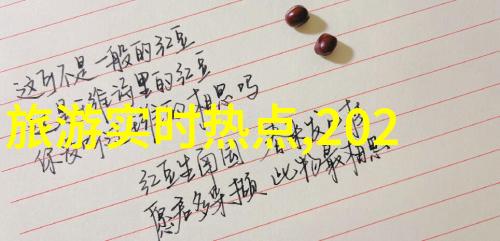 这可不是一般的红豆
维诗里的红豆
相思吗
旅游实时热点,202
红豆生南国 春来发枝
愿君多采撷 此物最相思